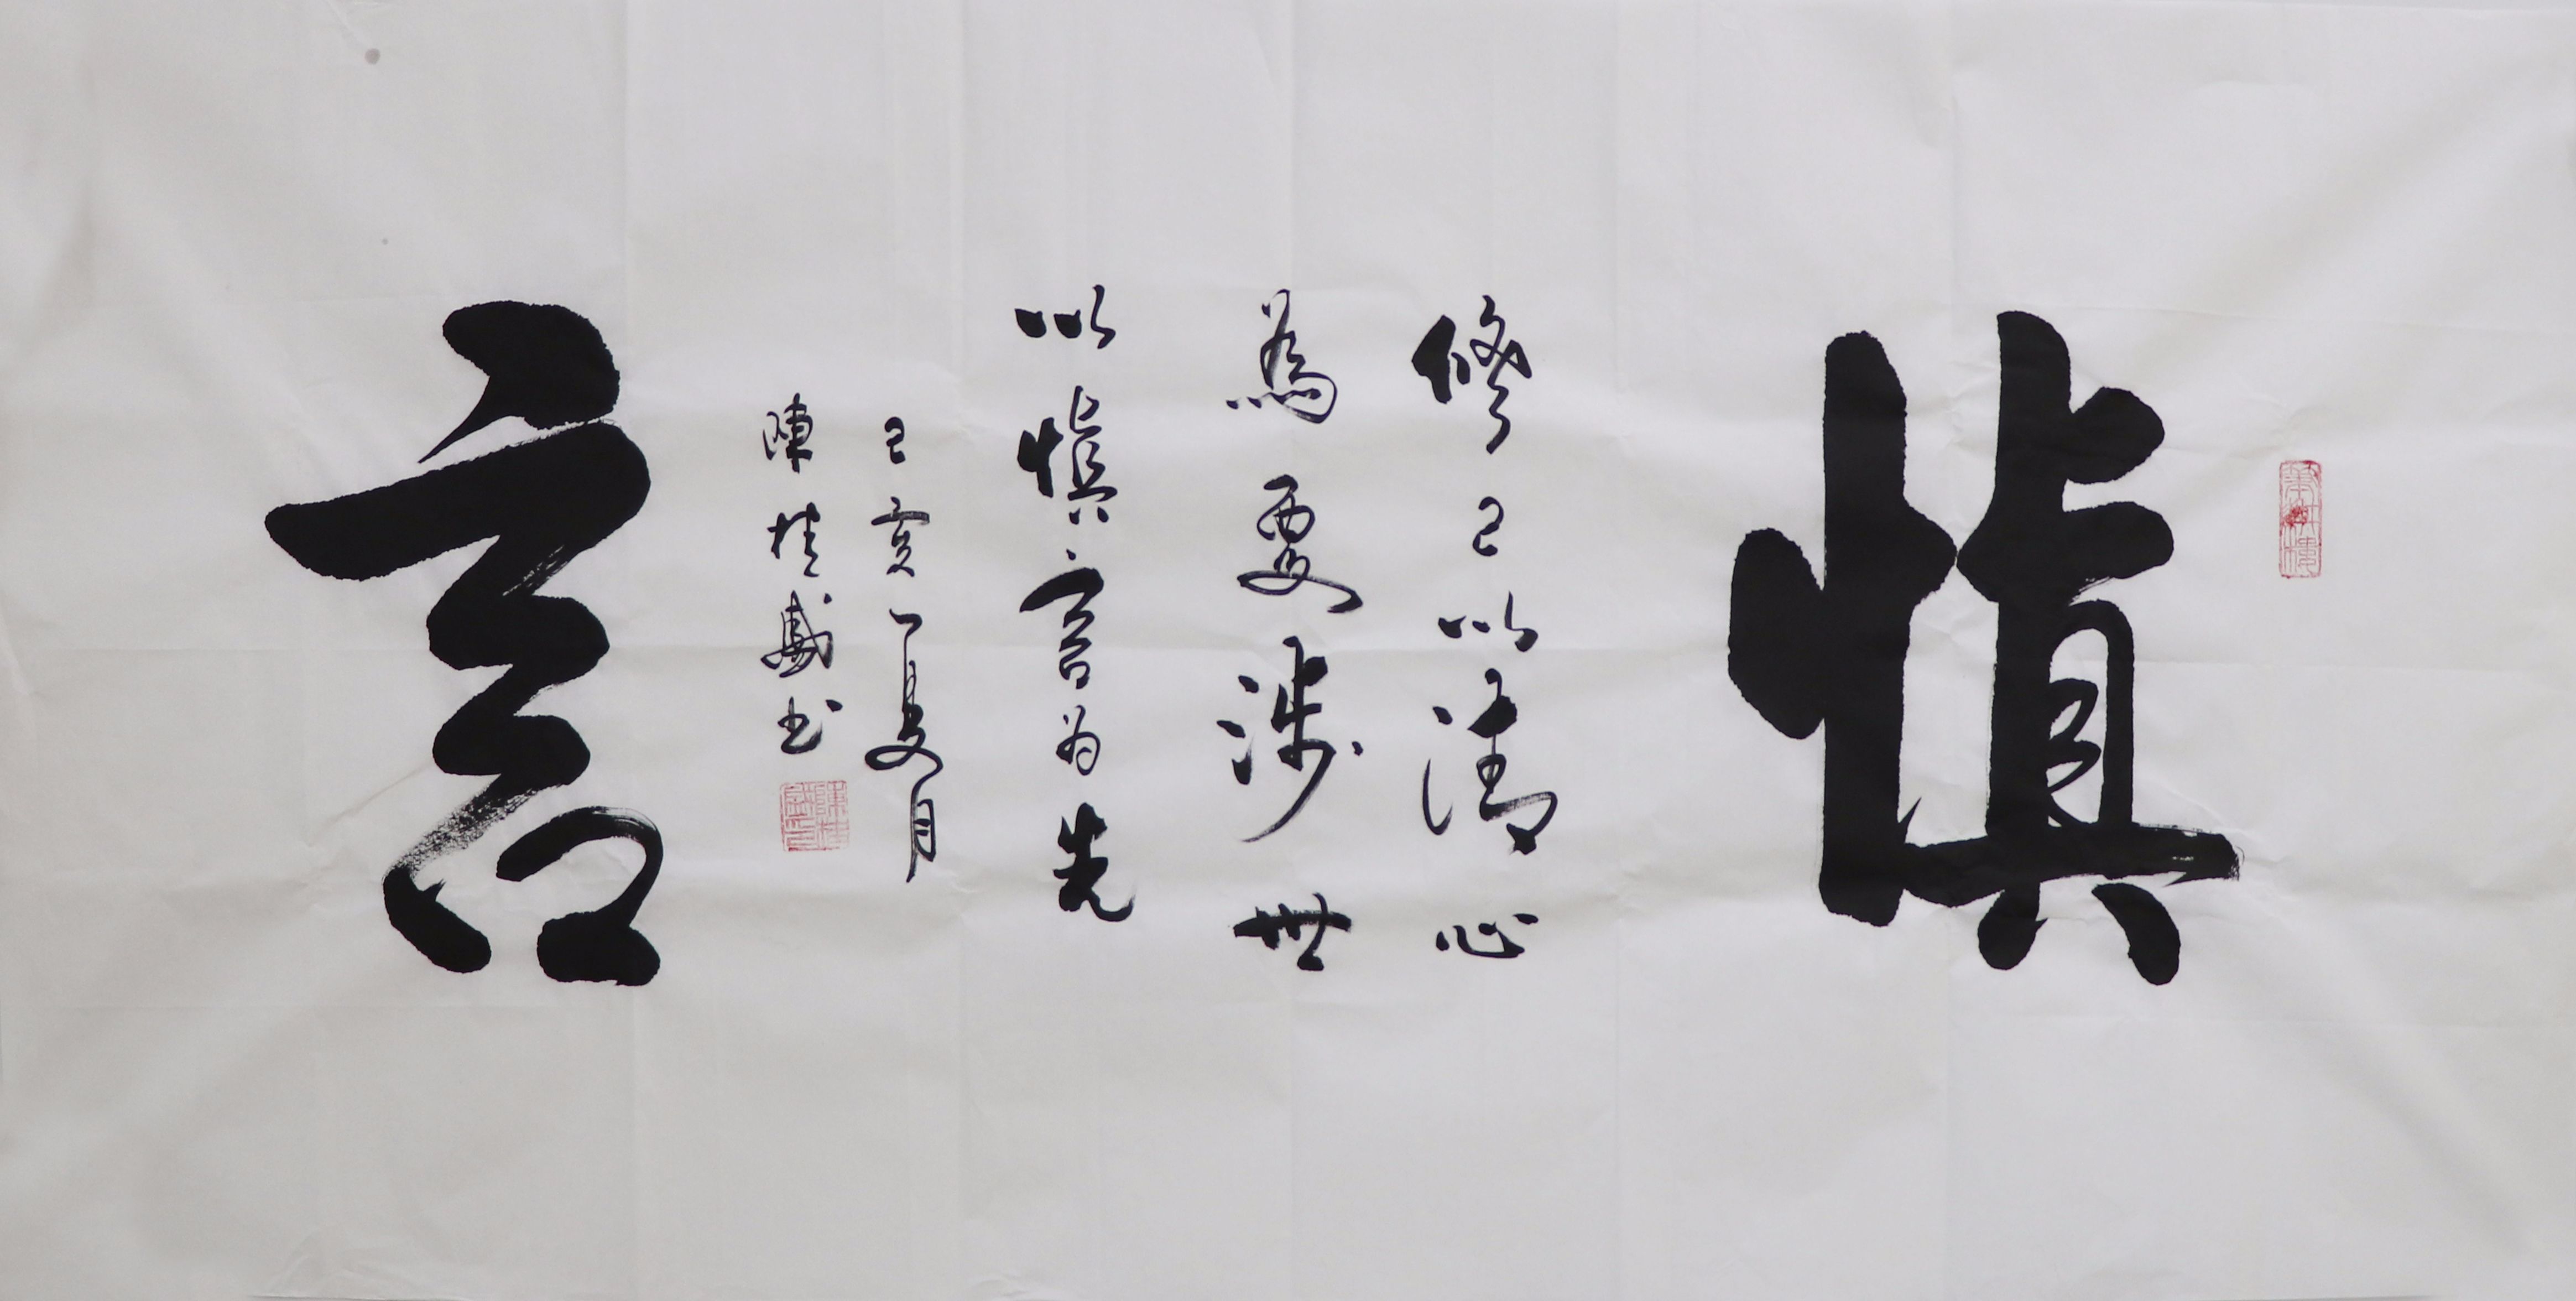 慎
修己以清心
為要涉世
以慎言為先
己亥夏月
陳桂盛书
言